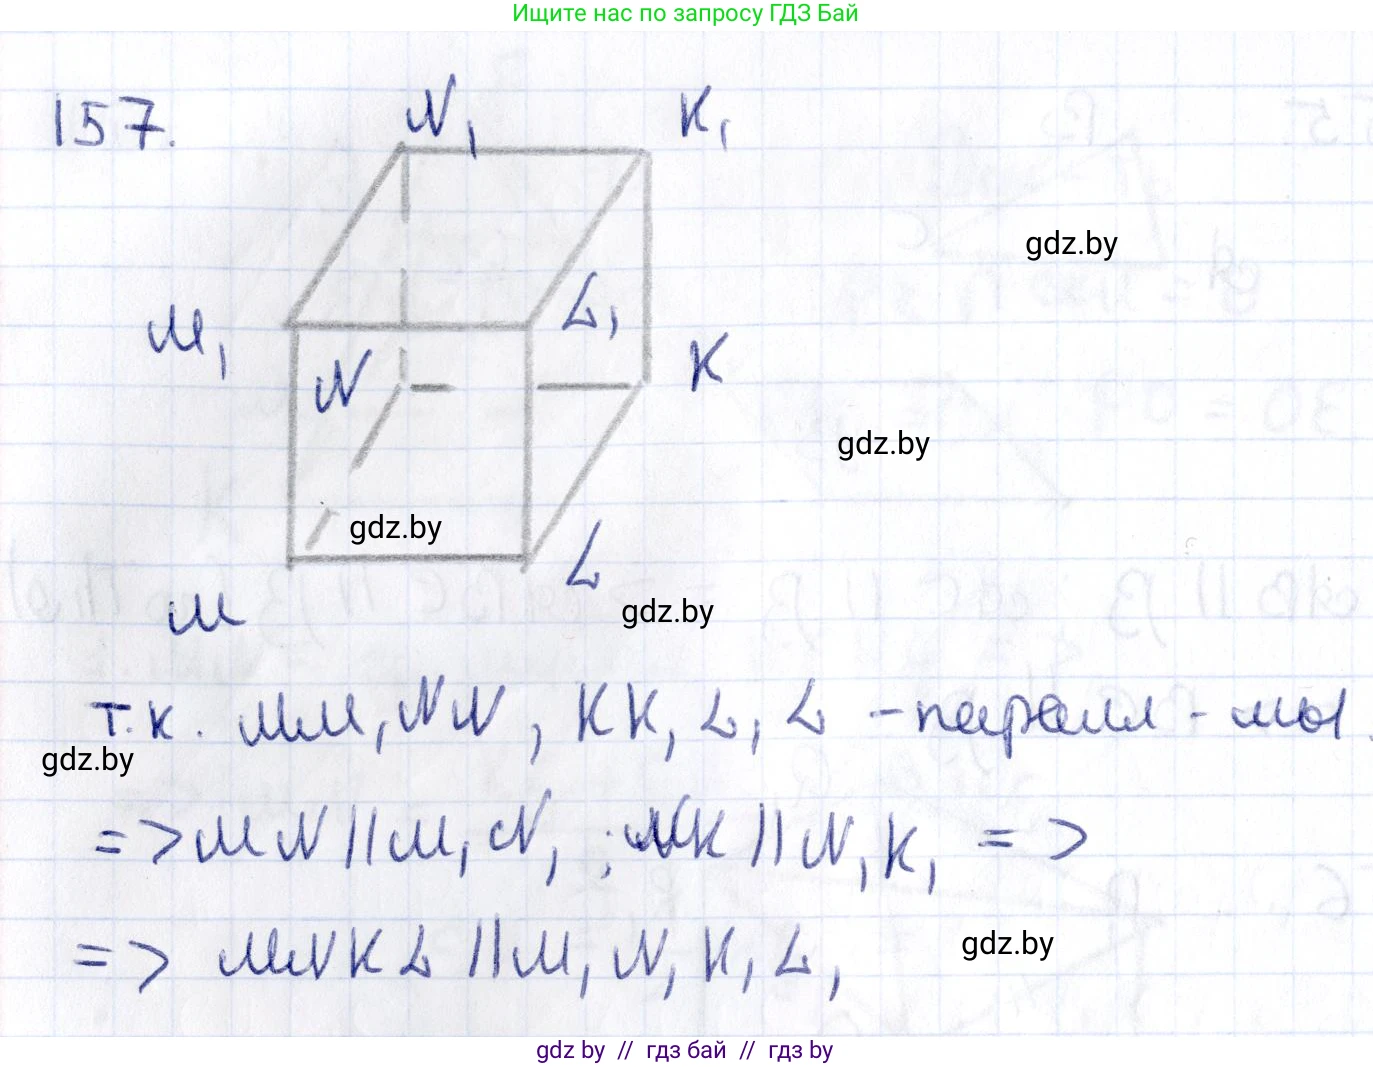 Ищите нас по запросу ГДЗ Бай
157.
N₁ K₁
gdz.by
M₁ L₁
N K
gdz.by
gdz.by
L
gdz.by
M
т.к. MM₁NN₁, KK₁L₁L - паралл-мы.
gdz.by
=> MN || M₁N₁; NK || N₁K₁ =>
=> MNKL || M₁N₁K₁L₁
gdz.by
gdz by // гдз бай // гдз by